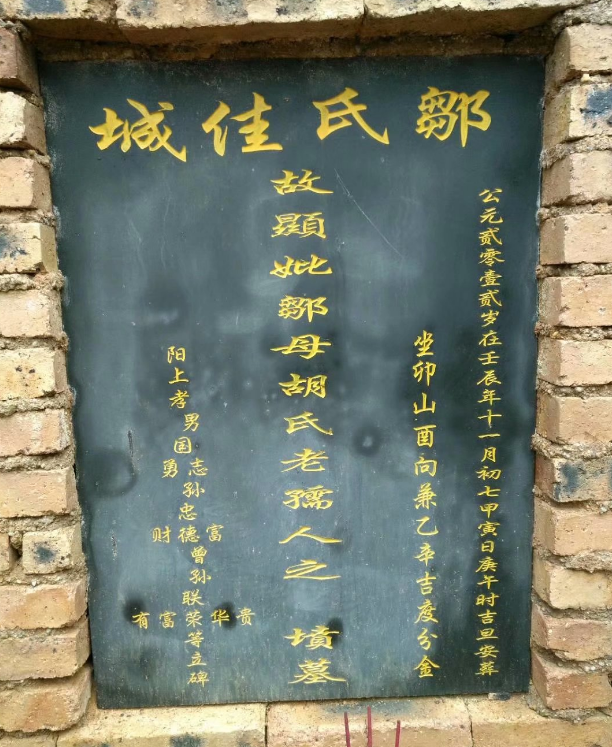 鄒氏佳城
公元贰零壹贰岁在壬辰年十一月初七甲寅日庚午时吉旦安葬
坐卯山酉向兼乙辛吉度分金
故顯妣鄒母胡氏老孺人之 墳墓
阳上孝男国志勇孙忠德富财曾孙联荣华贵富有等立碑